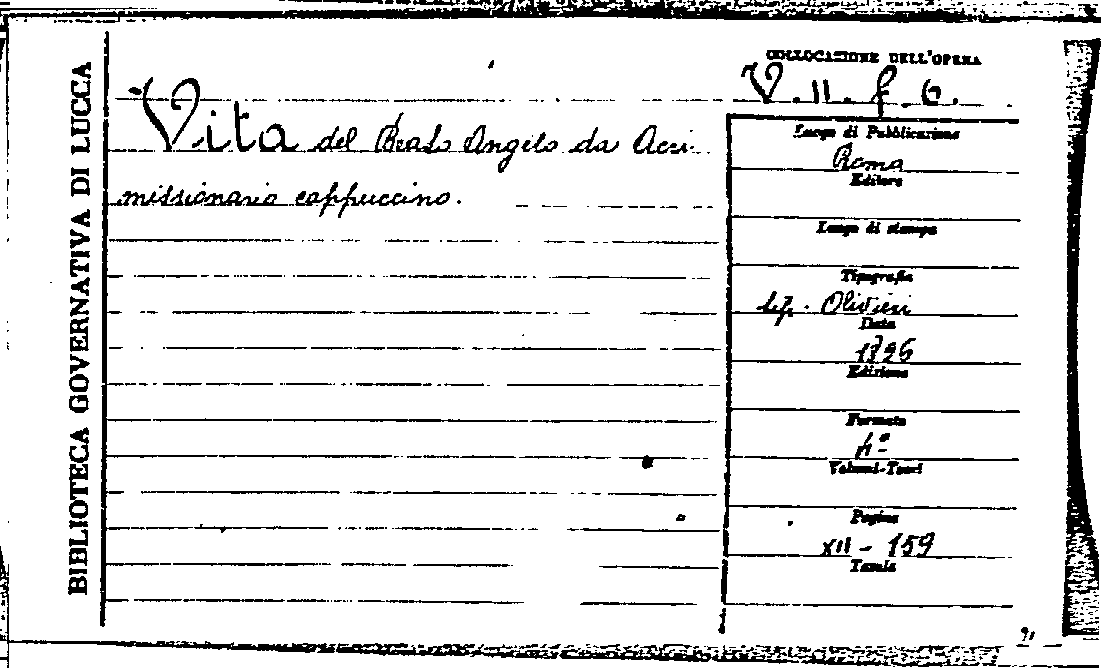 BIBLIOTECA GOVERNATIVA DI LUCCA
Vita del Beato Angelo da Acri
missionario cappuccino.
COLLOCAZIONE DELL'OPERA
V. II. f. 6.
Luogo di Pubblicazione
Roma
Editore
Luogo di stampa
Tipografia
tip. Olivieri
Data
1826
Edizione
Formato
4º
Volumi-Tomi
Pagine
XII - 159
Tavole